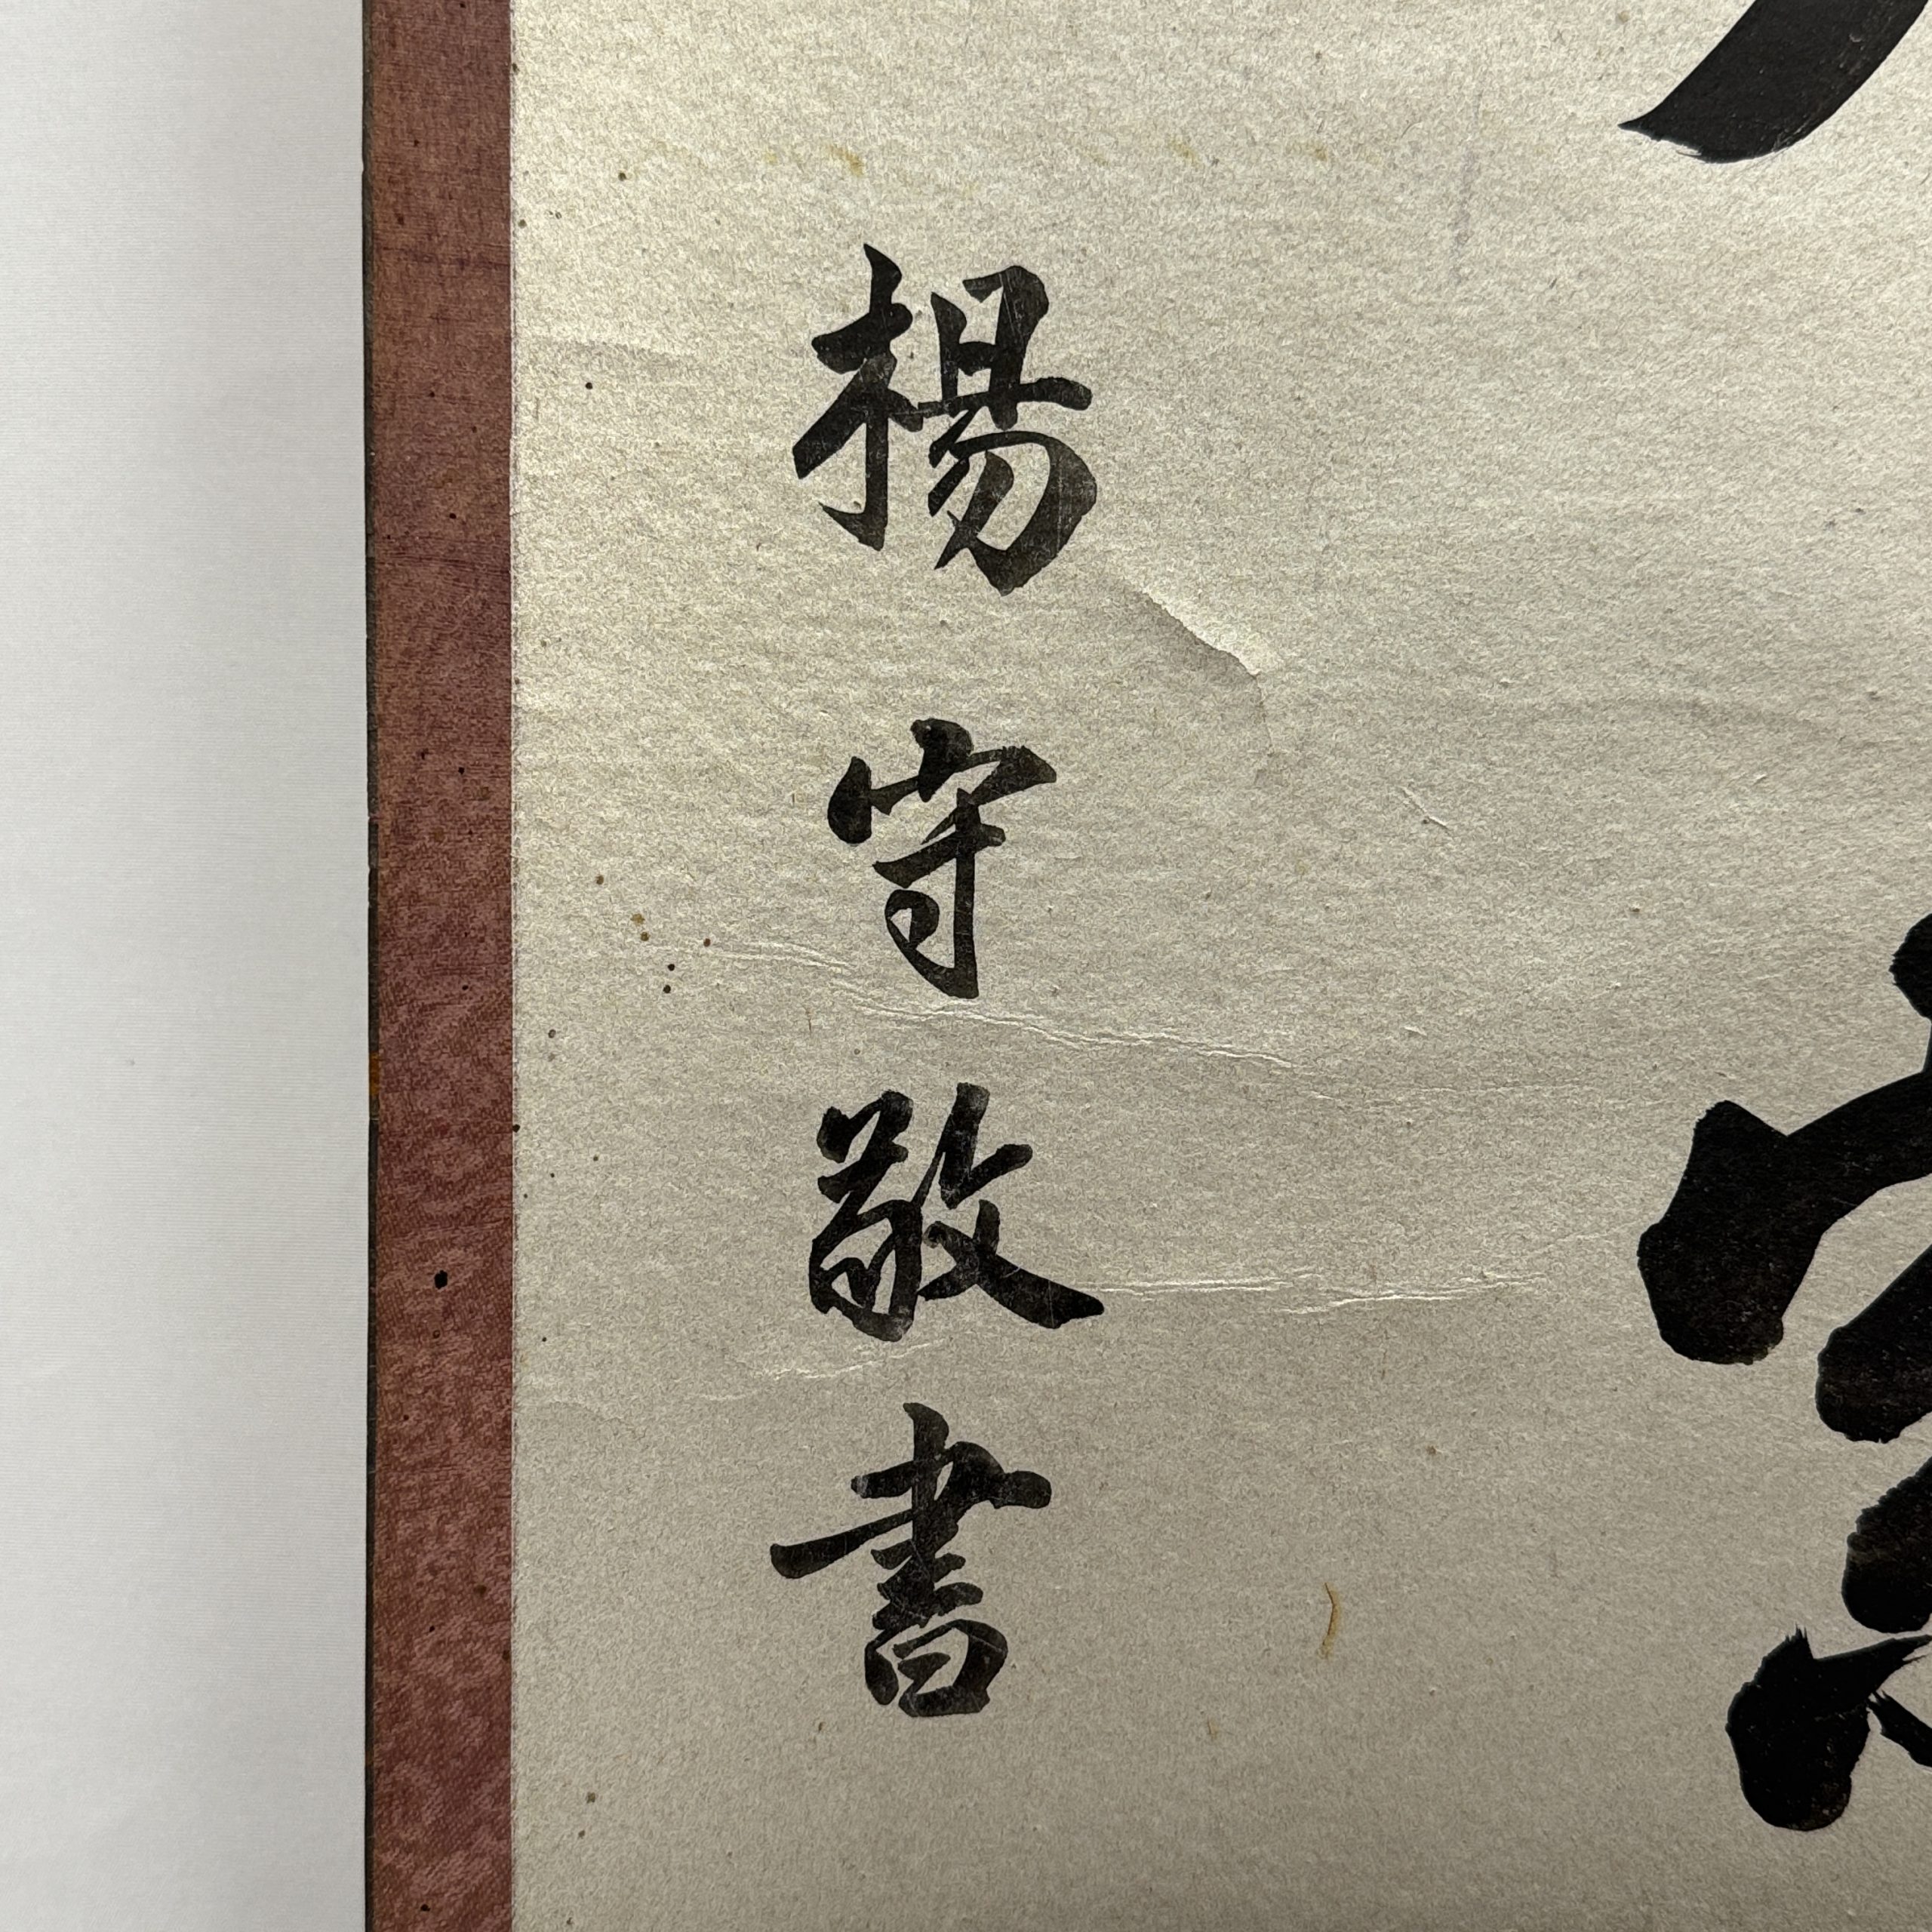 楊守敬書